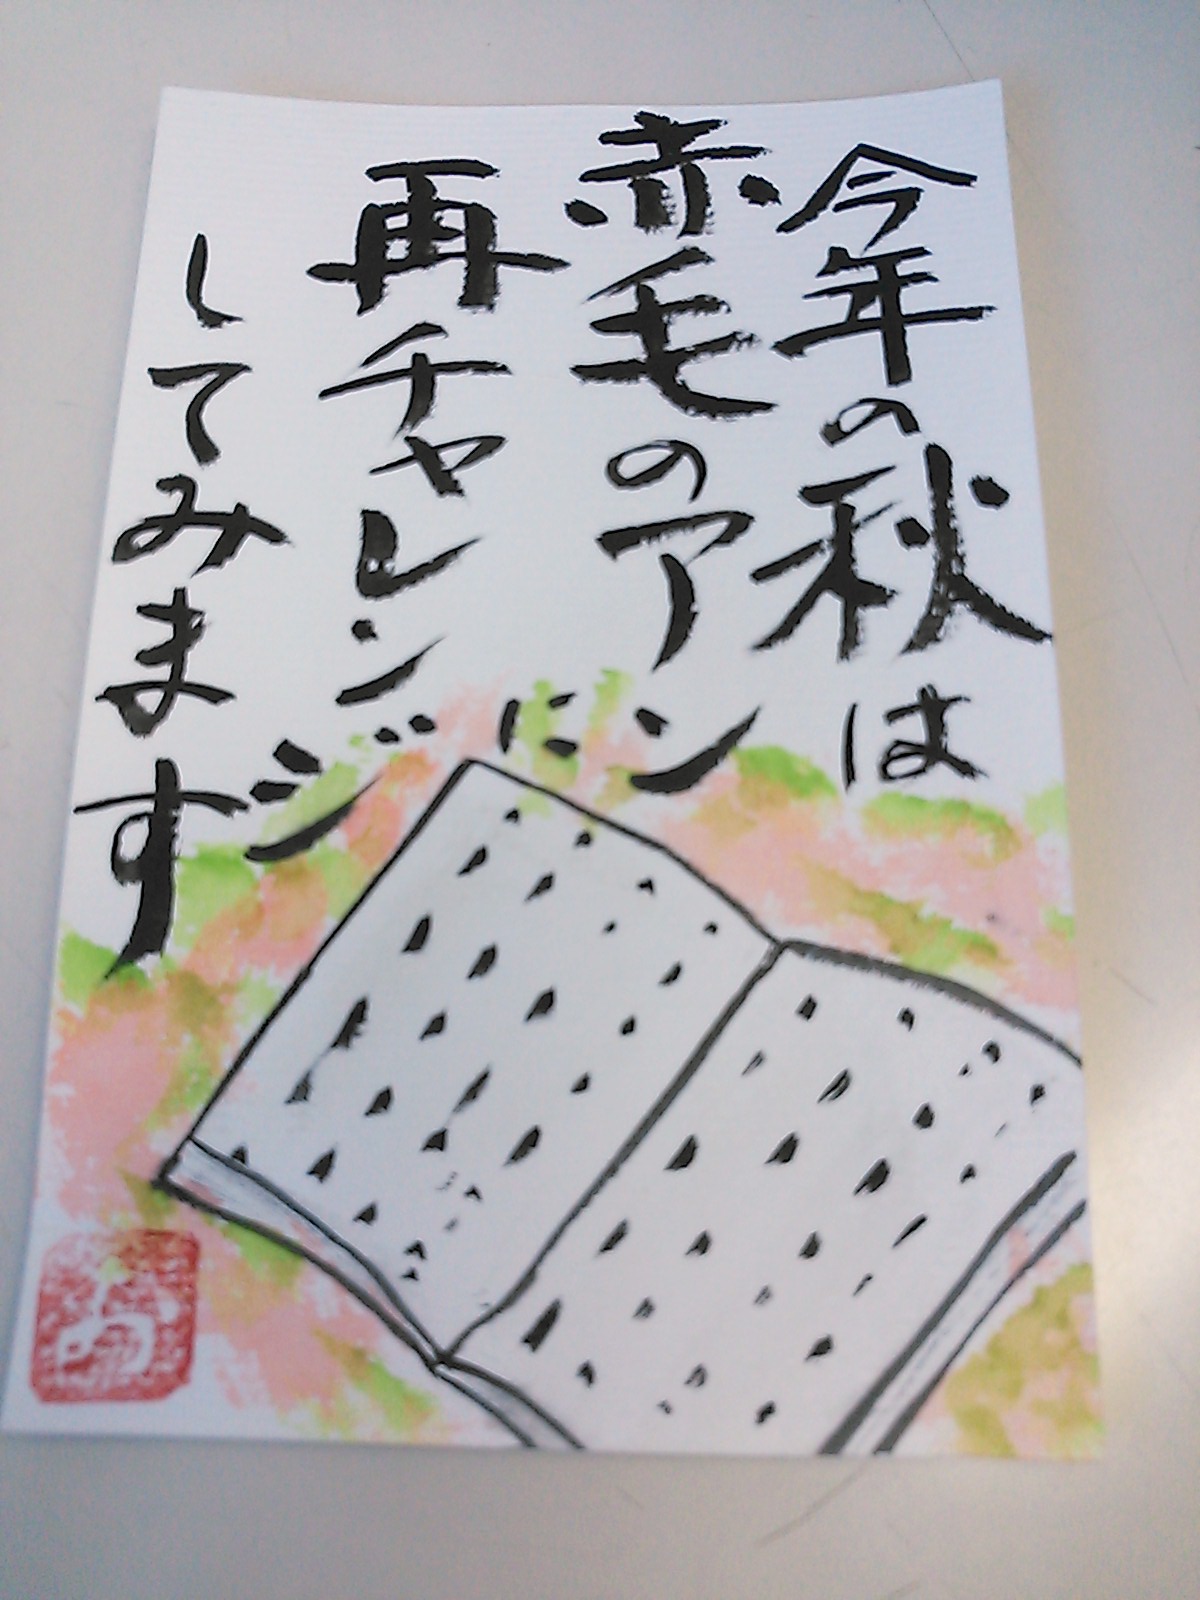 今年の秋は
赤毛のアンに
再チャレンジ
してみます
お